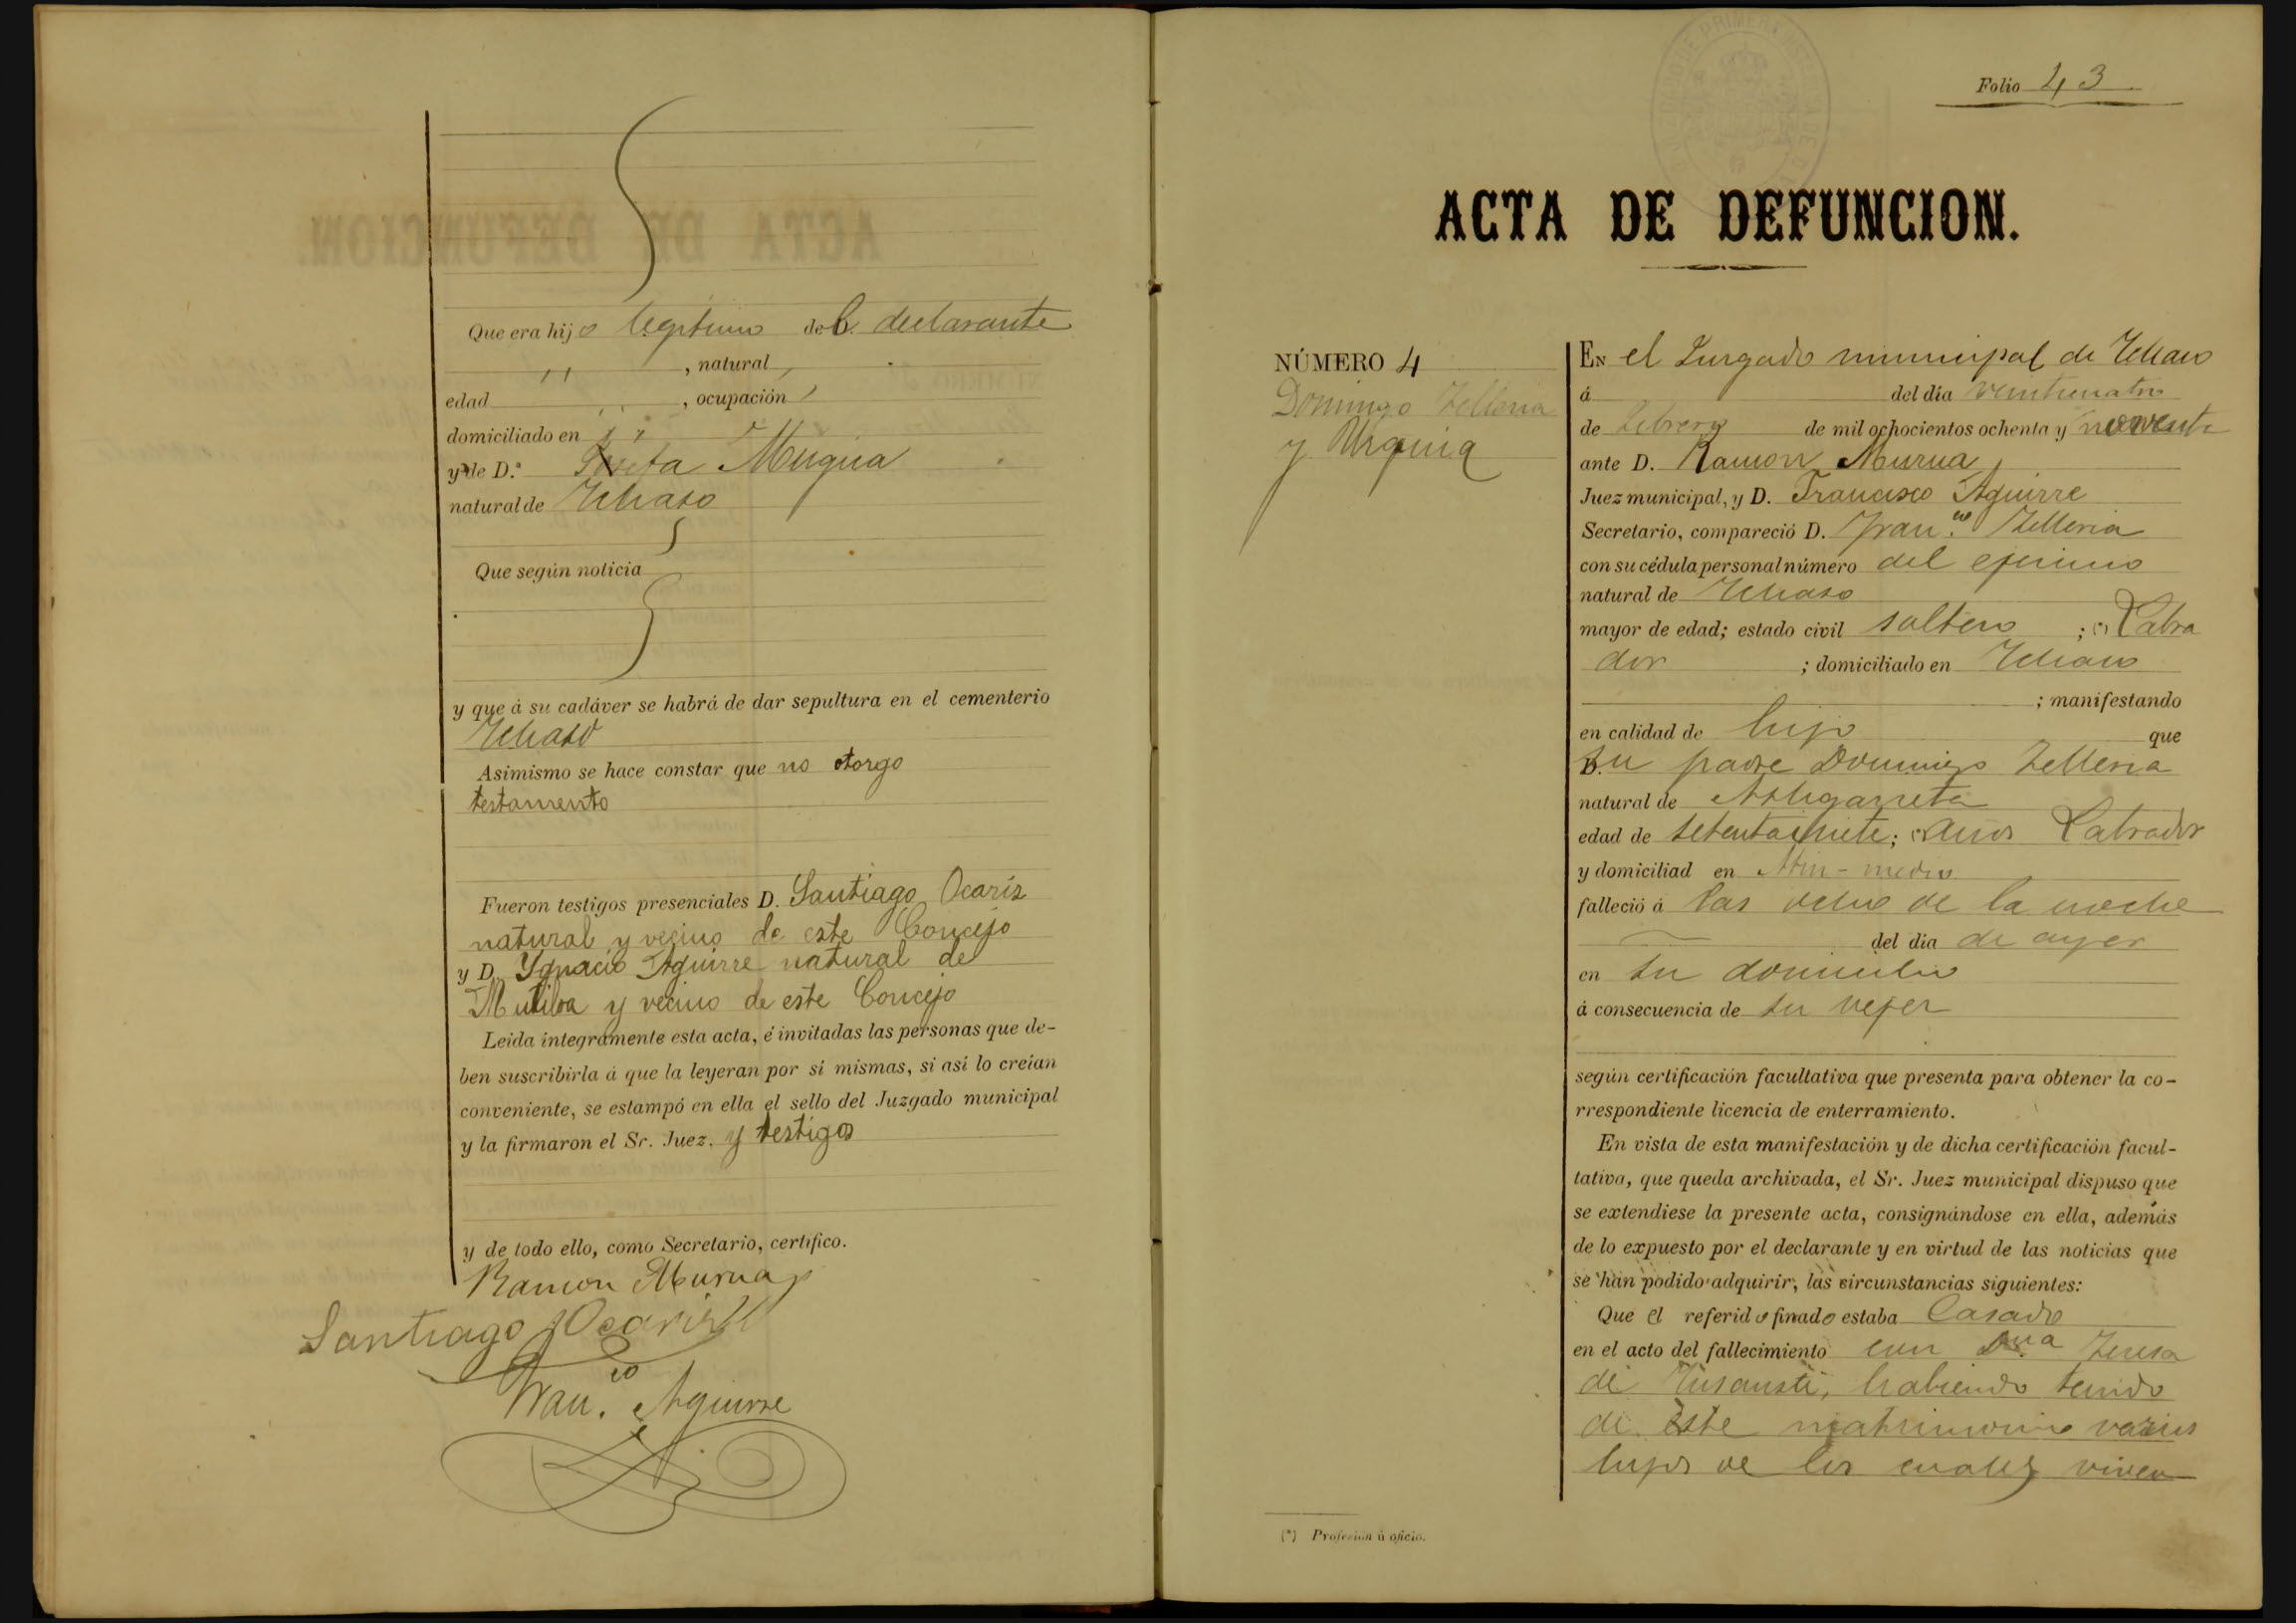 Que era hijo legitimo del declarante
,, , natural ,,
edad ,, , ocupación ,,
domiciliado en ,,
y de D.ª Josefa Mugica
natural de Ichaso
Que según noticia
y que á su cadáver se habrá de dar sepultura en el cementerio
Ichaso
Asimismo se hace constar que no otorgo
testamento
Fueron testigos presenciales D. Santiago Ocariz
natural y vecino de este Concejo
y D. Ygnacio Aguirre natural de
Mutiloa y vecino de este Concejo
Leida íntegramente esta acta, é invitadas las personas que de-
ben suscribirla á que la leyeran por sí mismas, si así lo creían
conveniente, se estampó en ella el sello del Juzgado municipal
y la firmaron el Sr. Juez, y testigos
y de todo ello, como Secretario, certifico.
Ramon Murua
Santiago Ocariz
Fran.co Aguirre
Folio 43
ACTA DE DEFUNCION.
NÚMERO 4
Domingo Telleria
y Urquia
EN el Juzgado municipal de Ichaso
á del dia veinticuatro
de Febrero de mil ochocientos ochenta y noventa
ante D. Ramon Murua
Juez municipal, y D. Francisco Aguirre
Secretario, compareció D. Fran.co Telleria
con su cédula personal número del ejercicio
natural de Ichaso
mayor de edad; estado civil soltero ; (*) Labra
dor ; domiciliado en Ichaso
; manifestando
en calidad de hijo que
D. su padre Domingo Telleria
natural de Astigarreta
edad de setenta y siete; (*) años Labrador
y domiciliad en
falleció á las ocho de la noche
del dia de ayer
en su domicilio
á consecuencia de su vejez
según certificación facultativa que presenta para obtener la co-
rrespondiente licencia de enterramiento.
En vista de esta manifestación y de dicha certificación facul-
tativa, que queda archivada, el Sr. Juez municipal dispuso que
se extendiese la presente acta, consignándose en ella, además
de lo expuesto por el declarante y en virtud de las noticias que
se han podido adquirir, las circunstancias siguientes:
Que el referido finado estaba Casado
en el acto del fallecimiento con D.ña Teresa
de habiendo tenido
de este matrimonio varios
hijos de los cuales viven
(*) Profesión ú oficio.